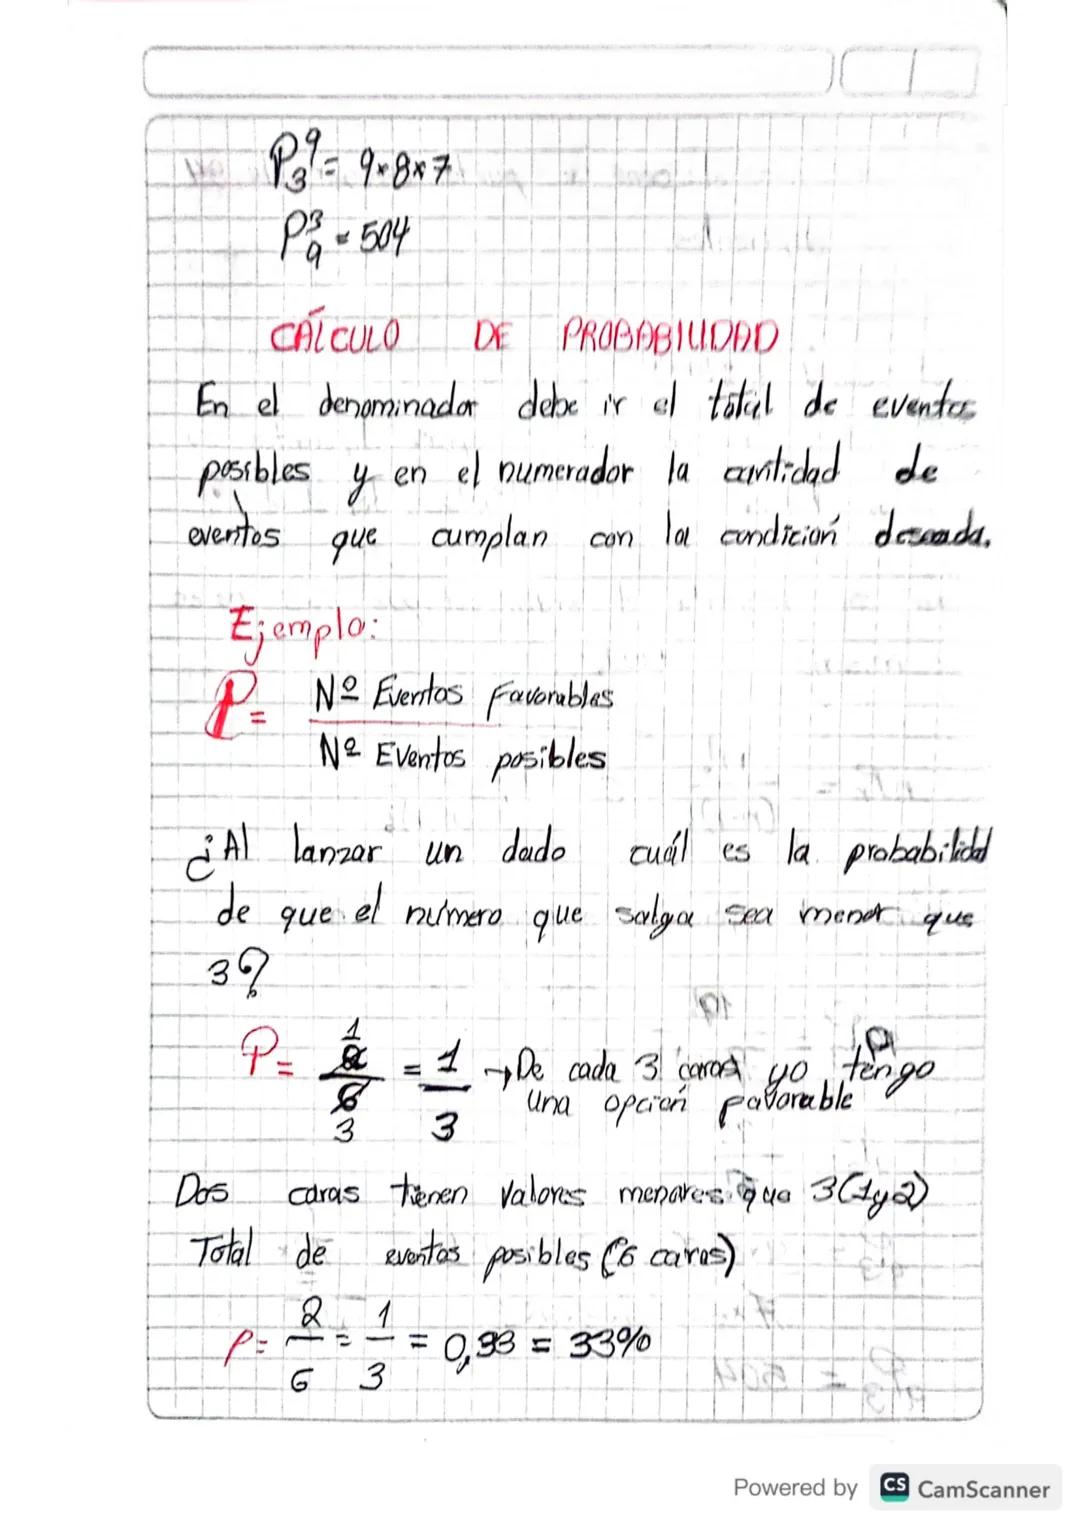 P₃⁹ = 9×8×7
P₉³ = 504
CÁLCULO DE PROBABILIDAD
En el denominador debe ir el total de eventos
posibles y en el numerador la cantidad de
eventos que cumplan con la condición deseada.
Ejemplo:
P = Nº Eventos Favorables
Nº Eventos posibles
¿Al lanzar un dado cuál es la probabilidad
de que el número que salga sea menor que
3?
P = 1 2 / 6 3 = 1/3 → De cada 3 caras yo tengo
una opción favorable
Dos caras tienen valores menores que 3 (1 y 2)
Total de eventos posibles (6 caras)
P = 2/6 = 1/3 = 0,33 = 33%
Powered by CS CamScanner